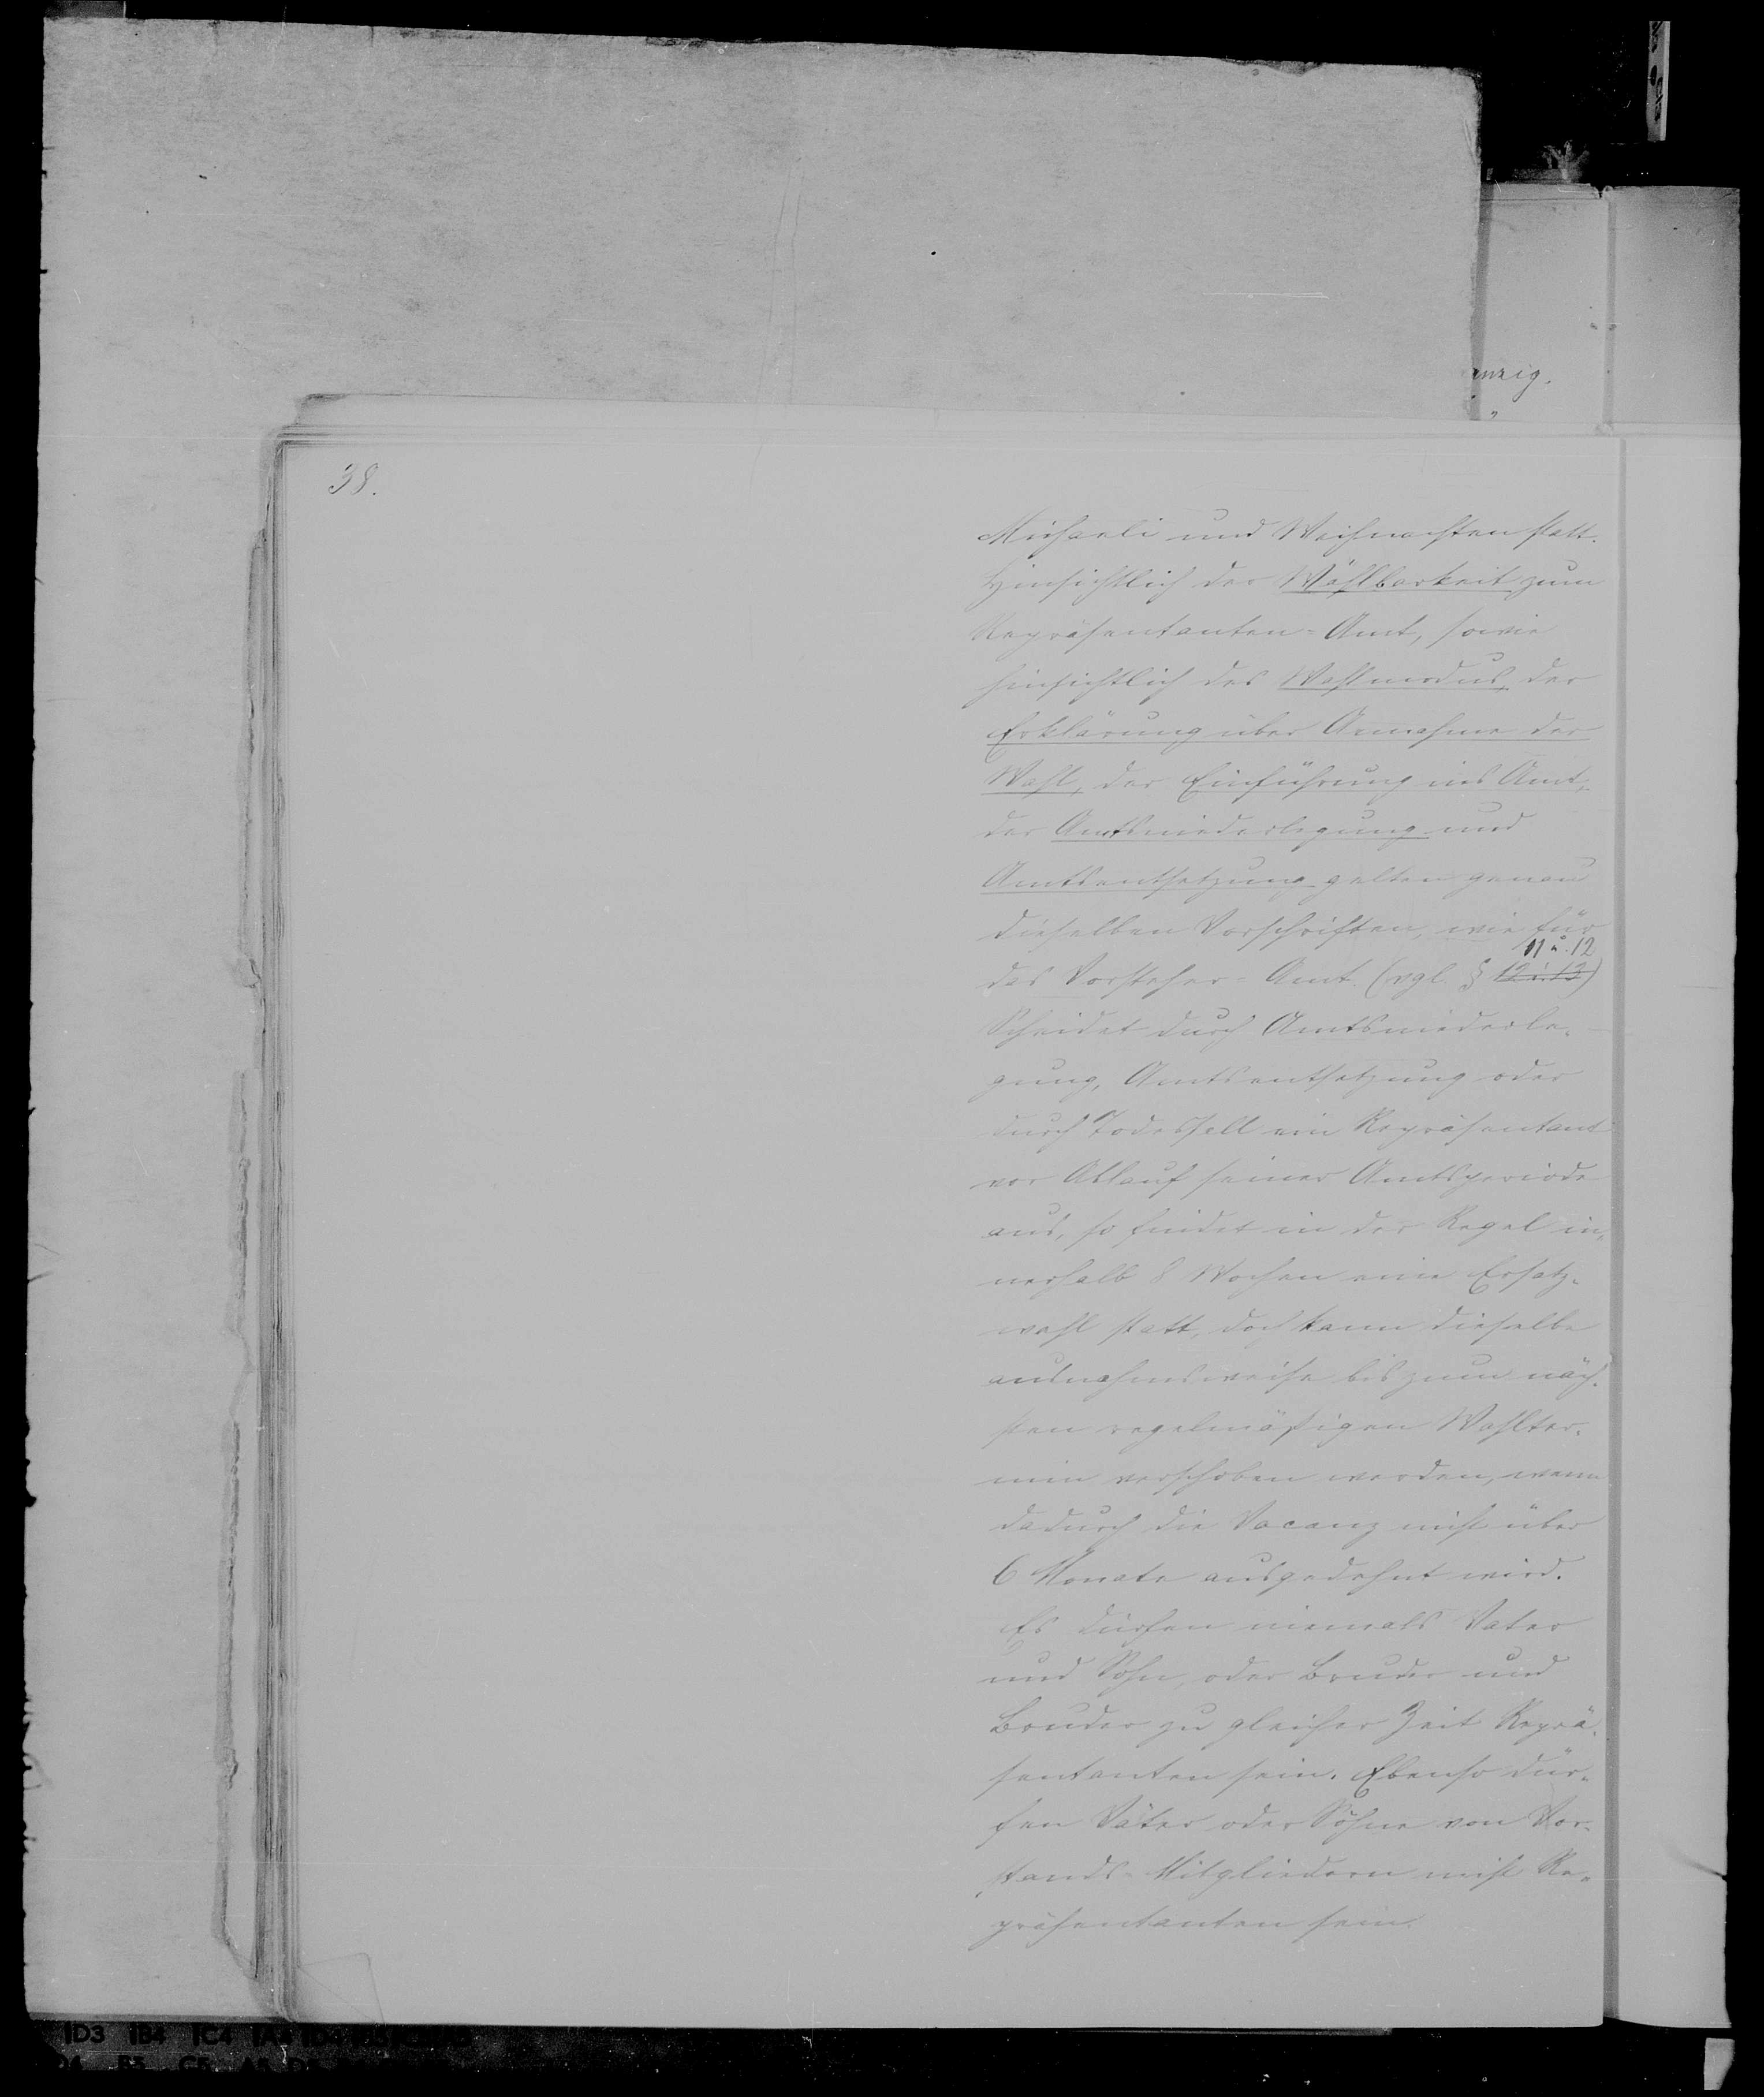 anzig.
38.
Michaeli und Weihnachten statt.
Hinsichtlich der Wählbarkeit zum
Repräsentanten-Amt, sowie
hinsichtlich des Wahlmodus, der
Erklärung über Annahme der
Wahl, der Einführung ins Amt,
der Amtsniederlegung und
Amtsentsetzung gelten genau
dieselben Vorschriften, wie für
11 u. 12
das Vorsteher-Amt. (vgl. § 12 u. 13)
Scheidet durch Amtsniederle-
gung, Amtsentsetzung oder
durch Todesfall ein Repräsentant
vor Ablauf seiner Amtsperiode
aus, so findet in der Regel in-
nerhalb 8 Wochen eine Ersatz-
wahl statt, doch kann dieselbe
ausnahmsweise bis zum näch-
sten regelmäßigen Wahlter-
min verschoben werden, wenn
dadurch die Vacanz nicht über
6 Monate ausgedehnt wird.
Es dürfen niemals Vater
und Sohn, oder Bruder und
Bruder zu gleicher Zeit Reprä-
sentanten sein. Ebenso dür-
fen Väter oder Söhne von Vor-
stands-Mitgliedern nicht Re-
präsentanten sein.